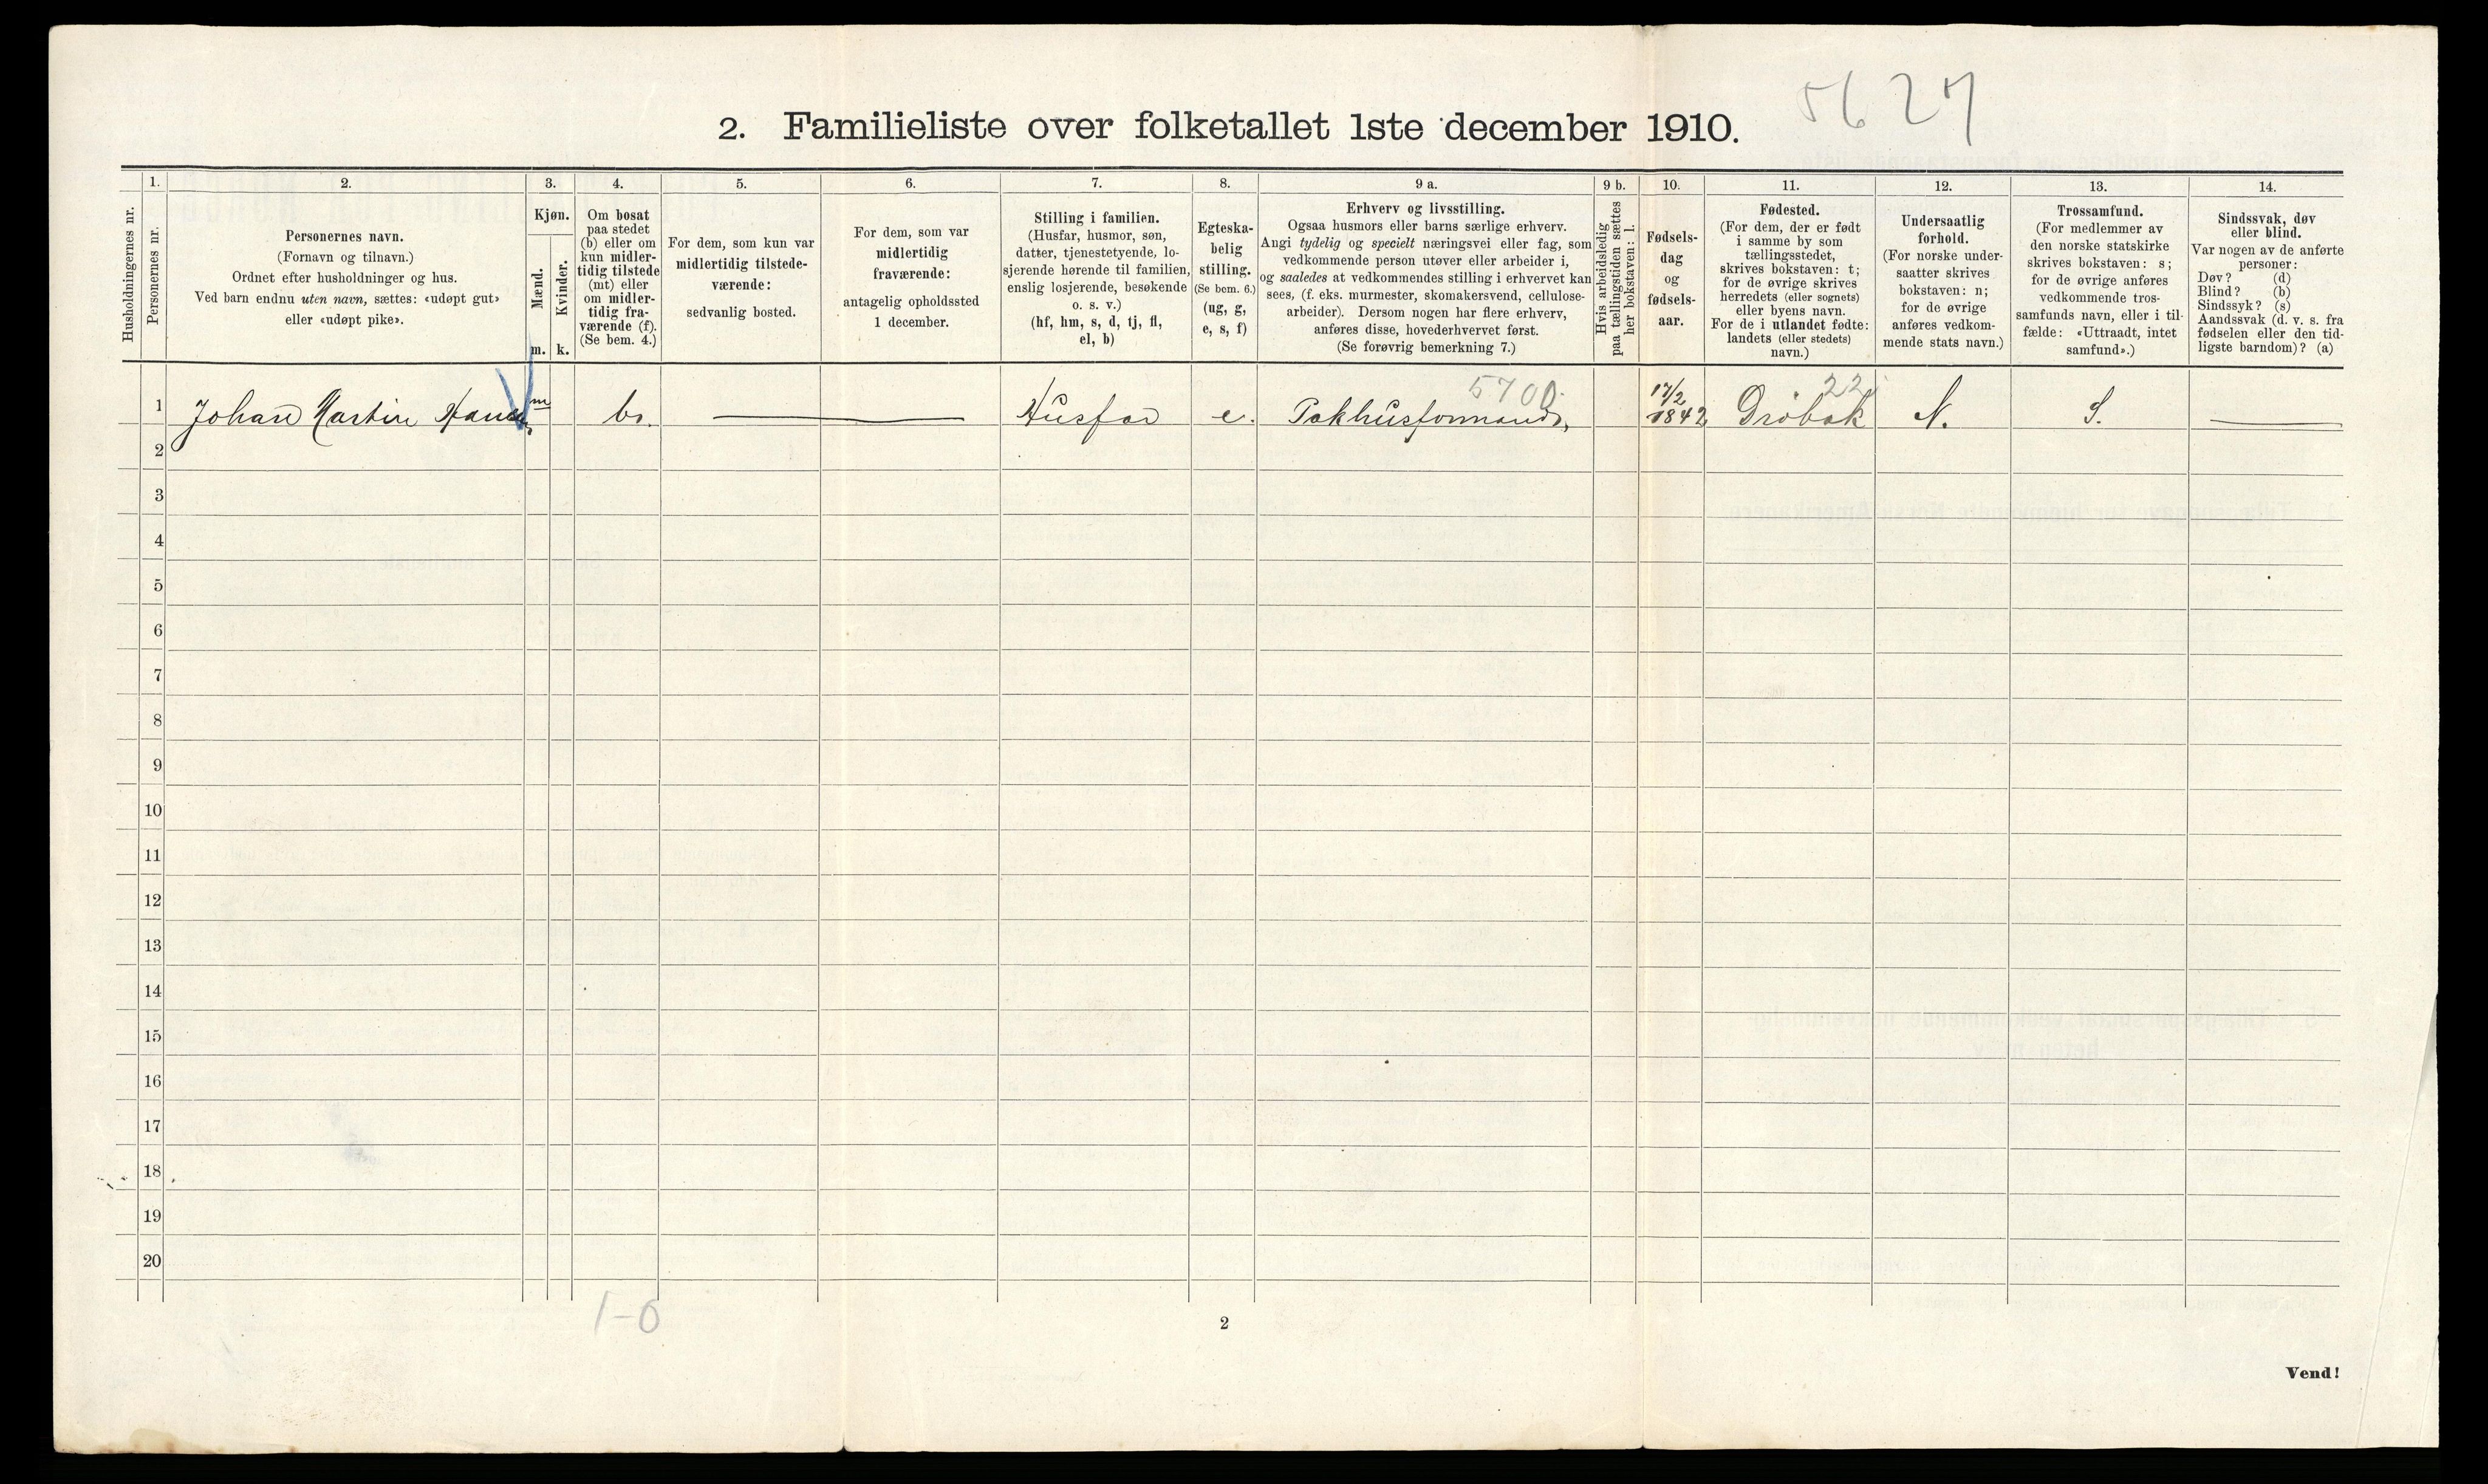 5627
2. Familieliste over folketallet 1ste december 1910.
1. 2. 3. 4. 5. 6. 7. 8. 9 a. 9 b. 10. 11. 12. 13. 14.
Husholdningernes nr.
Personernes nr.
Personernes navn.
(Fornavn og tilnavn.)
Ordnet efter husholdninger og hus.
Ved barn endnu uten navn, sættes: «udøpt gut»
eller «udøpt pike».
Kjøn.
Mænd.
m.
Kvinder.
k.
Om bosat
paa stedet
(b) eller om
kun midler-
tidig tilstede
(mt) eller
om midler-
tidig fra-
værende (f).
(Se bem. 4.)
For dem, som kun var
midlertidig tilstede-
værende:
sedvanlig bosted.
For dem, som var
midlertidig
fraværende:
antagelig opholdssted
1 december.
Stilling i familien.
(Husfar, husmor, søn,
datter, tjenestetyende, lo-
sjerende hørende til familien,
enslig losjerende, besøkende
o. s. v.)
(hf, hm, s, d, tj, fl,
el, b)
Egteska-
belig
stilling.
(Se bem. 6.)
(ug, g,
e, s, f)
Erhverv og livsstilling.
Ogsaa husmors eller barns særlige erhverv.
Angi tydelig og specielt næringsvei eller fag, som
vedkommende person utøver eller arbeider i,
og saaledes at vedkommendes stilling i erhvervet kan
sees, (f. eks. murmester, skomakersvend, cellulose-
arbeider). Dersom nogen har flere erhverv,
anføres disse, hovederhvervet først.
(Se forøvrig bemerkning 7.)
Hvis arbeidsledig
paa tællingstiden sættes
her bokstaven: l.
Fødsels-
dag
og
fødsels-
aar.
Fødested.
(For dem, der er født
i samme by som
tællingsstedet,
skrives bokstaven: t;
for de øvrige skrives
herredets (eller sognets)
eller byens navn.
For de i utlandet fødte:
landets (eller stedets)
navn.)
Undersaatlig
forhold.
(For norske under-
saatter skrives
bokstaven: n;
for de øvrige
anføres vedkom-
mende stats navn.)
Trossamfund.
(For medlemmer av
den norske statskirke
skrives bokstaven: s;
for de øvrige anføres
vedkommende tros-
samfunds navn, eller i til-
fælde: «Uttraadt, intet
samfund».)
Sindssvak, døv
eller blind.
Var nogen av de anførte
personer:
Døv? (d)
Blind? (b)
Sindssyk? (s)
Aandssvak (d. v. s. fra
fødselen eller den tid-
ligste barndom)? (a)
5700. 22
1 Johan Martin Hansen m b. Husfar e. Pakhusformand, 17/2 1842 Drøbak N. S.
2
3
4
5
6
7
8
9
10
11
12
13
14
15
16
17
18
19
20
1-0
2
Vend!